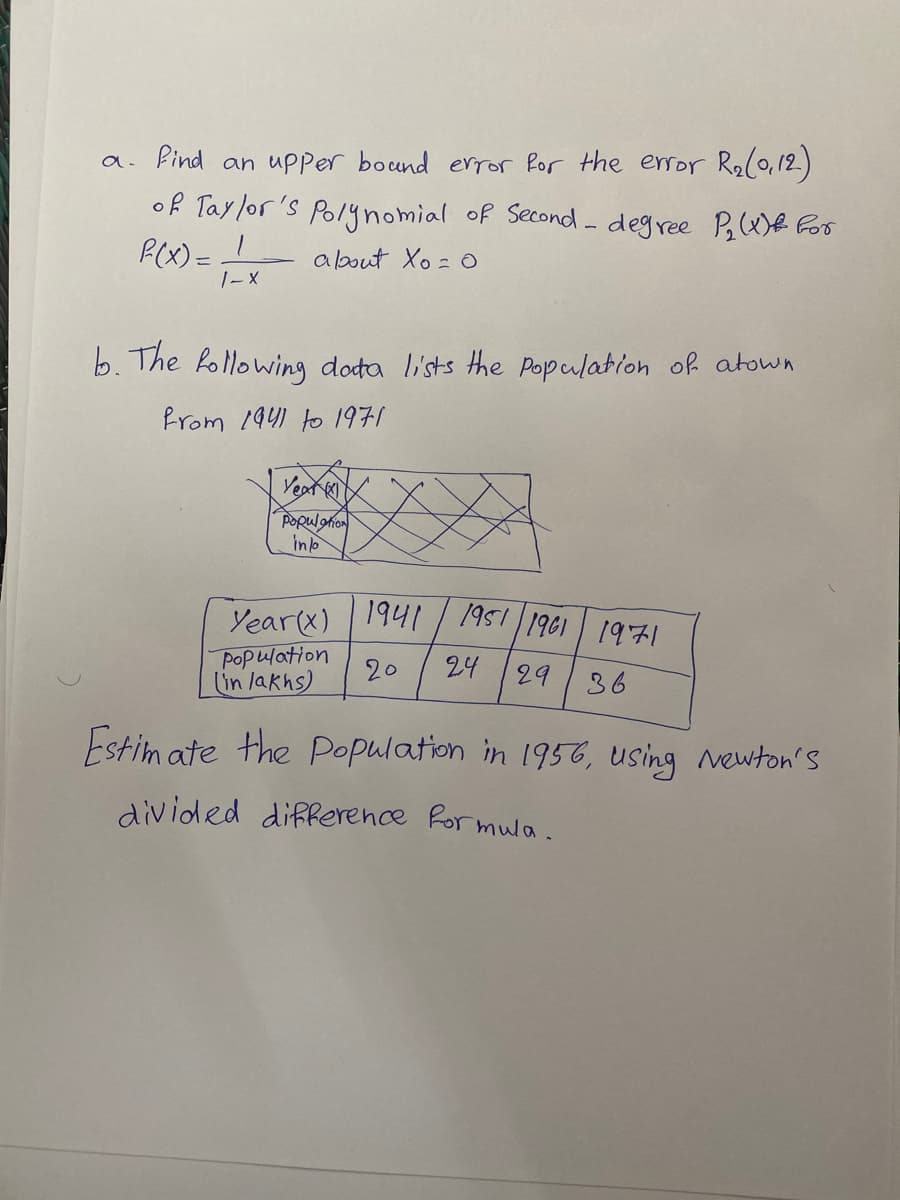 a. find an upper bound error for the error R₂(0,12)
of Taylor's Polynomial of Second - degree P₂(x) for
f(x) = 1/1-x about X₀ = 0
b. The following data lists the population of atown
from 1941 to 1971
Year (x)
population
in
Year(x) 1941 1951 1961 1971
population (in lakhs) 20 24 29 36
Estimate the population in 1956, using Newton's
divided difference formula.